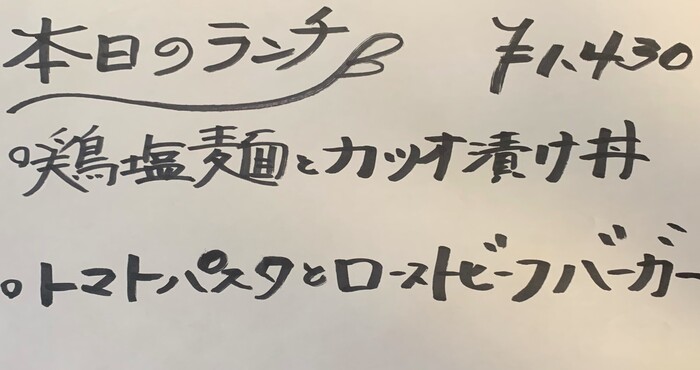 本日のランチ ¥1,430
○鶏塩麺とカツオ漬け丼
○トマトパスタとローストビーフバーガー